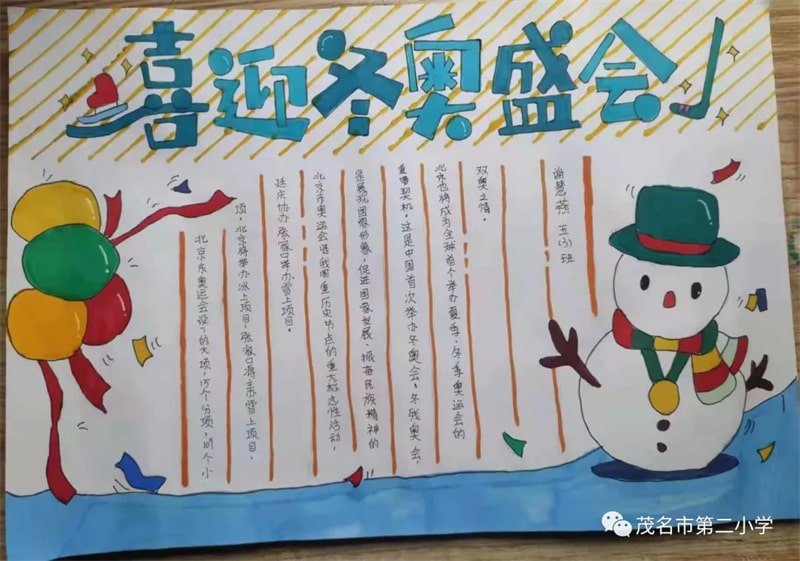 喜迎冬奥盛会
北京冬奥运会设7的大项,15个分项,109个小
项。北京将举办冰上项目,张家口将承办雪上项目,
延庆协办张家口举办雪上项目。
北京冬奥运会是我国重历史节点的重大标志性活动,
是展现国家形象,促进国家发展、振奋民族精神的
重要契机。这是中国首次举办冬奥会、冬残奥会,
北京也将成为全球首个举办夏季、冬季奥运会的
双奥之情。
谢慧燕 五(3)班
茂名市第二小学